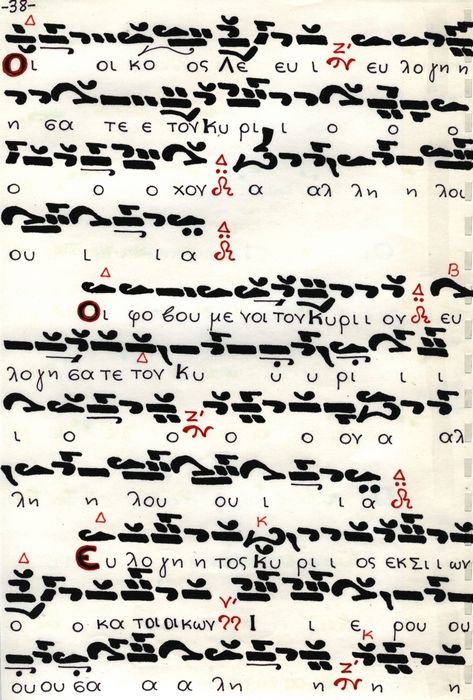 -38-
Οι οι κο ος Λε ευ ι ευ λο γη η
η σα τε ε τον Κυ ρι ι ο ο ο
ο ο ο χον α αλ λη η λοι
ου ι ι α
Οι φο βου με νοι τον Κυ ρι ι ον ευ
λο γη σα τε τον Κυ υ υ ρι ι ι
ι ο ο ο ο ον α αλ
λη η λου ου ι ι α
Ευ λο γη η τος Κυ ρι ι ος εκ Σι ι ων
ο ο κα τοι οι κων Ι ι ε ρου ου
ου ου σα α α λη η η η